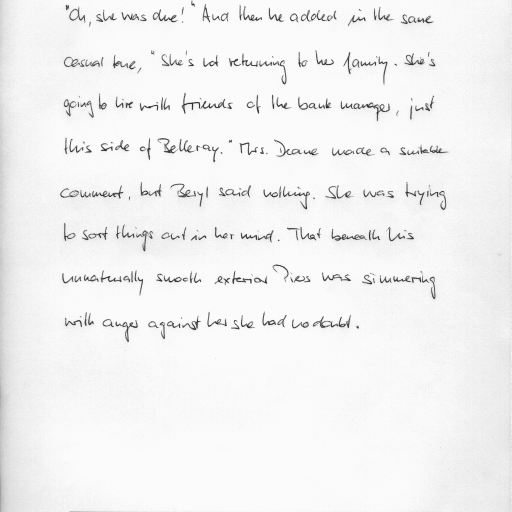 "Oh, she was due!" And then he added in the same
casual tone, "She's not returning to her family. She's
going to live with friends of the bank manager, just
this side of Belleray." Mrs. Deane made a suitable
comment, but Beryl said nothing. She was trying
to sort things out in her mind. That beneath his
unnaturally smooth exterior Piers was simmering
with anger against her she had no doubt.